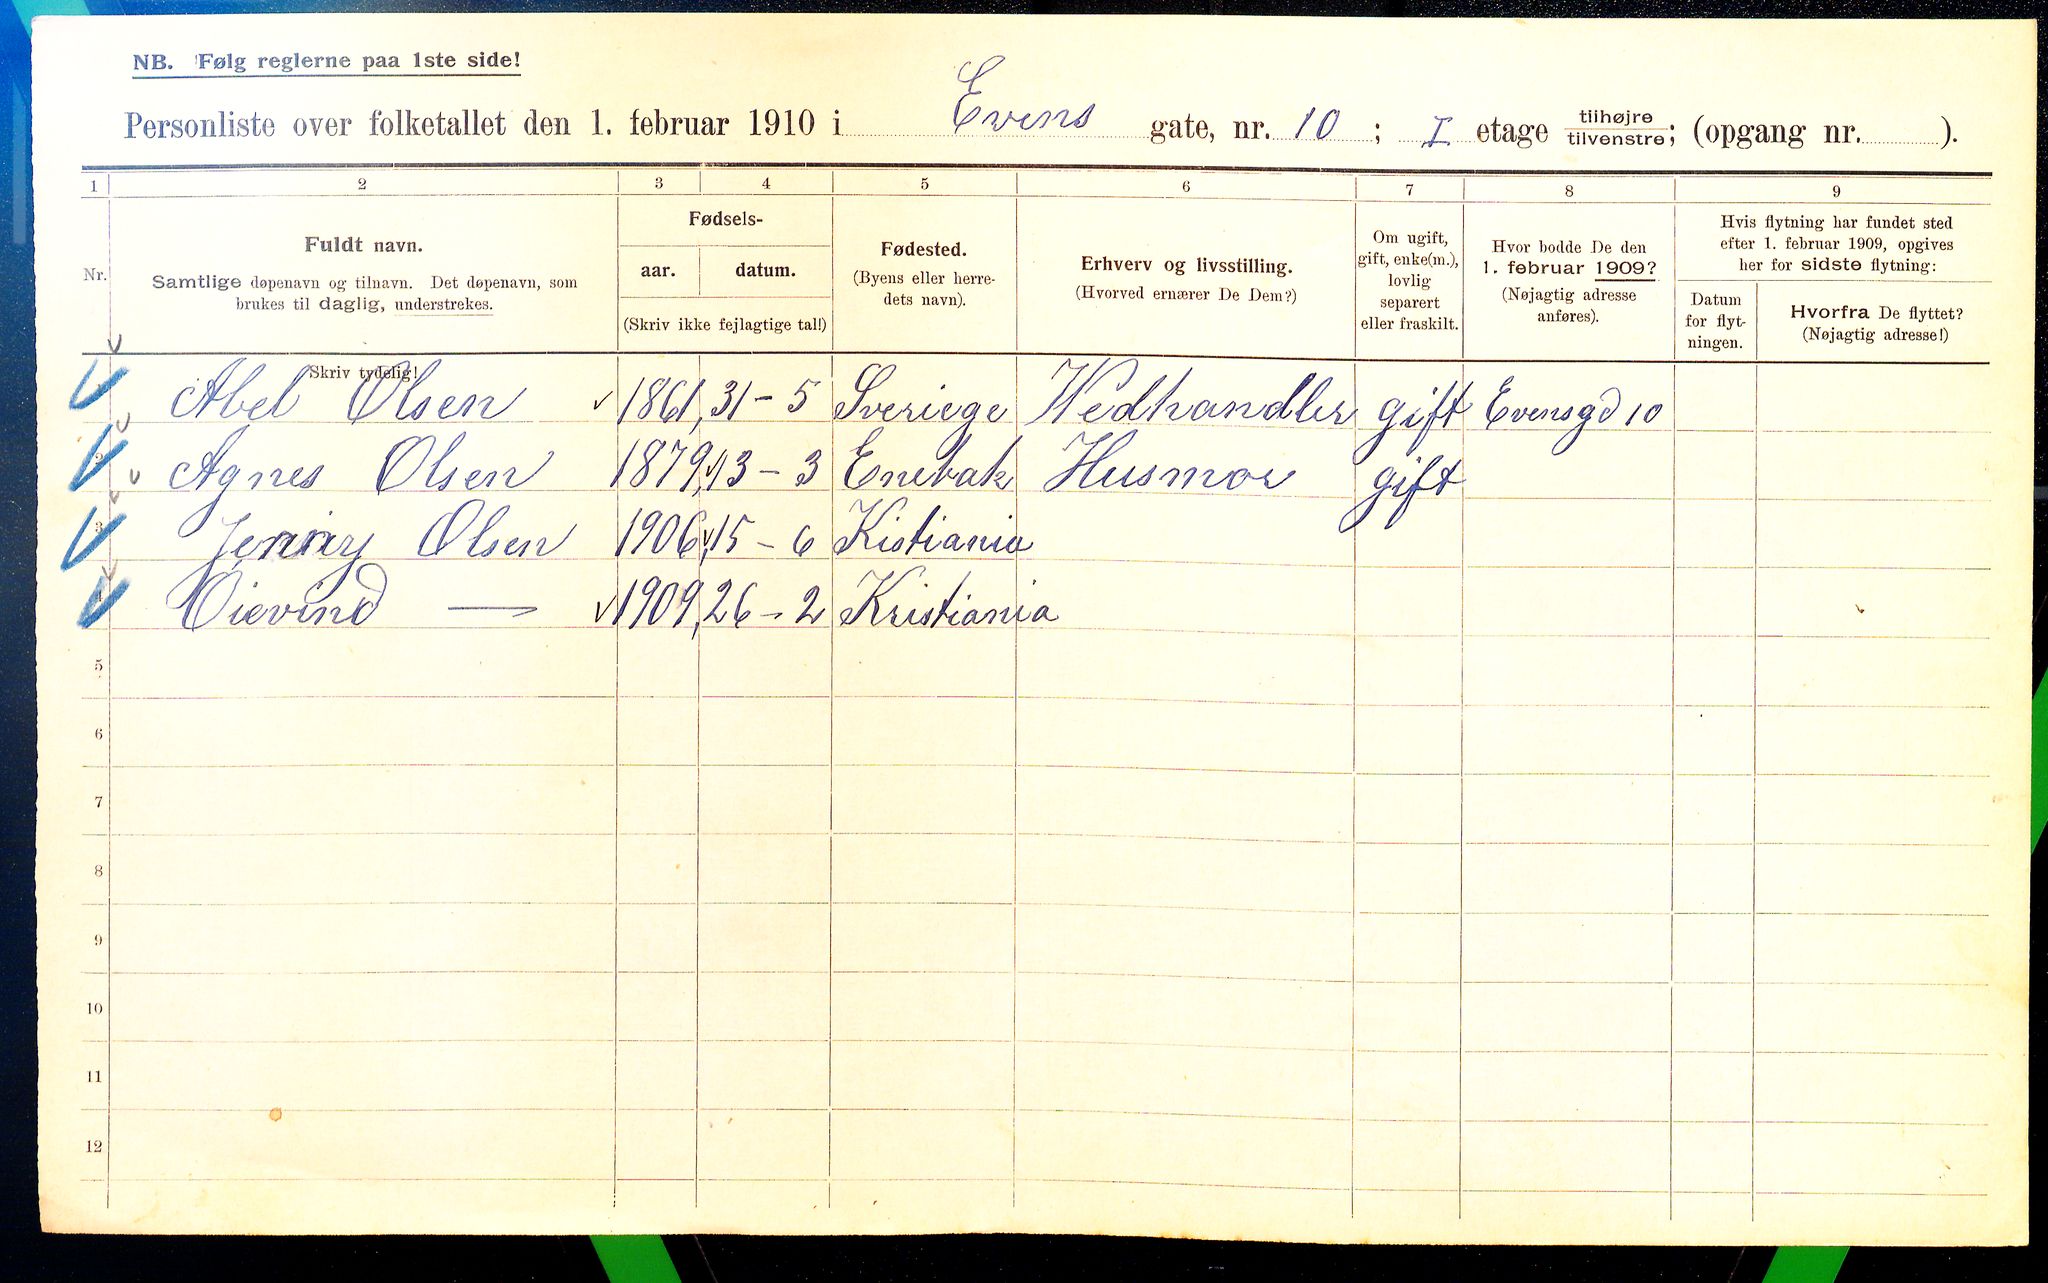 NB. Følg reglerne paa 1ste side!
Personliste over folketallet den 1. februar 1910 i Evens gate, nr. 10 ; I etage tilhøjre tilvenstre; (opgang nr. ).
1 2 3 4 5 6 7 8 9
Nr.
Fuldt navn.
Samtlige døpenavn og tilnavn. Det døpenavn, som
brukes til daglig, understrekes.
Skriv tydelig!
Fødsels-
aar. datum.
(Skriv ikke fejlagtige tal!)
Fødested.
(Byens eller herre-
dets navn).
Erhverv og livsstilling.
(Hvorved ernærer De Dem?)
Om ugift,
gift, enke(m.),
lovlig
separert
eller fraskilt.
Hvor bodde De den
1. februar 1909?
(Nøjagtig adresse
anføres).
Hvis flytning har fundet sted
efter 1. februar 1909, opgives
her for sidste flytning:
Datum
for flyt-
ningen.
Hvorfra De flyttet?
(Nøjagtig adresse!)
Abel Olsen 1861, 31 - 5 Sveriege Wedhandler gift Evensgd 10
2 Agnes Olsen 1879, 13 - 3 Enebak Husmor gift
3 Jenny Olsen 1906, 15 - 6 Kistiania
4 Oievind — 1909, 26 - 2 Kristiania
5
6
7
8
9
10
11
12